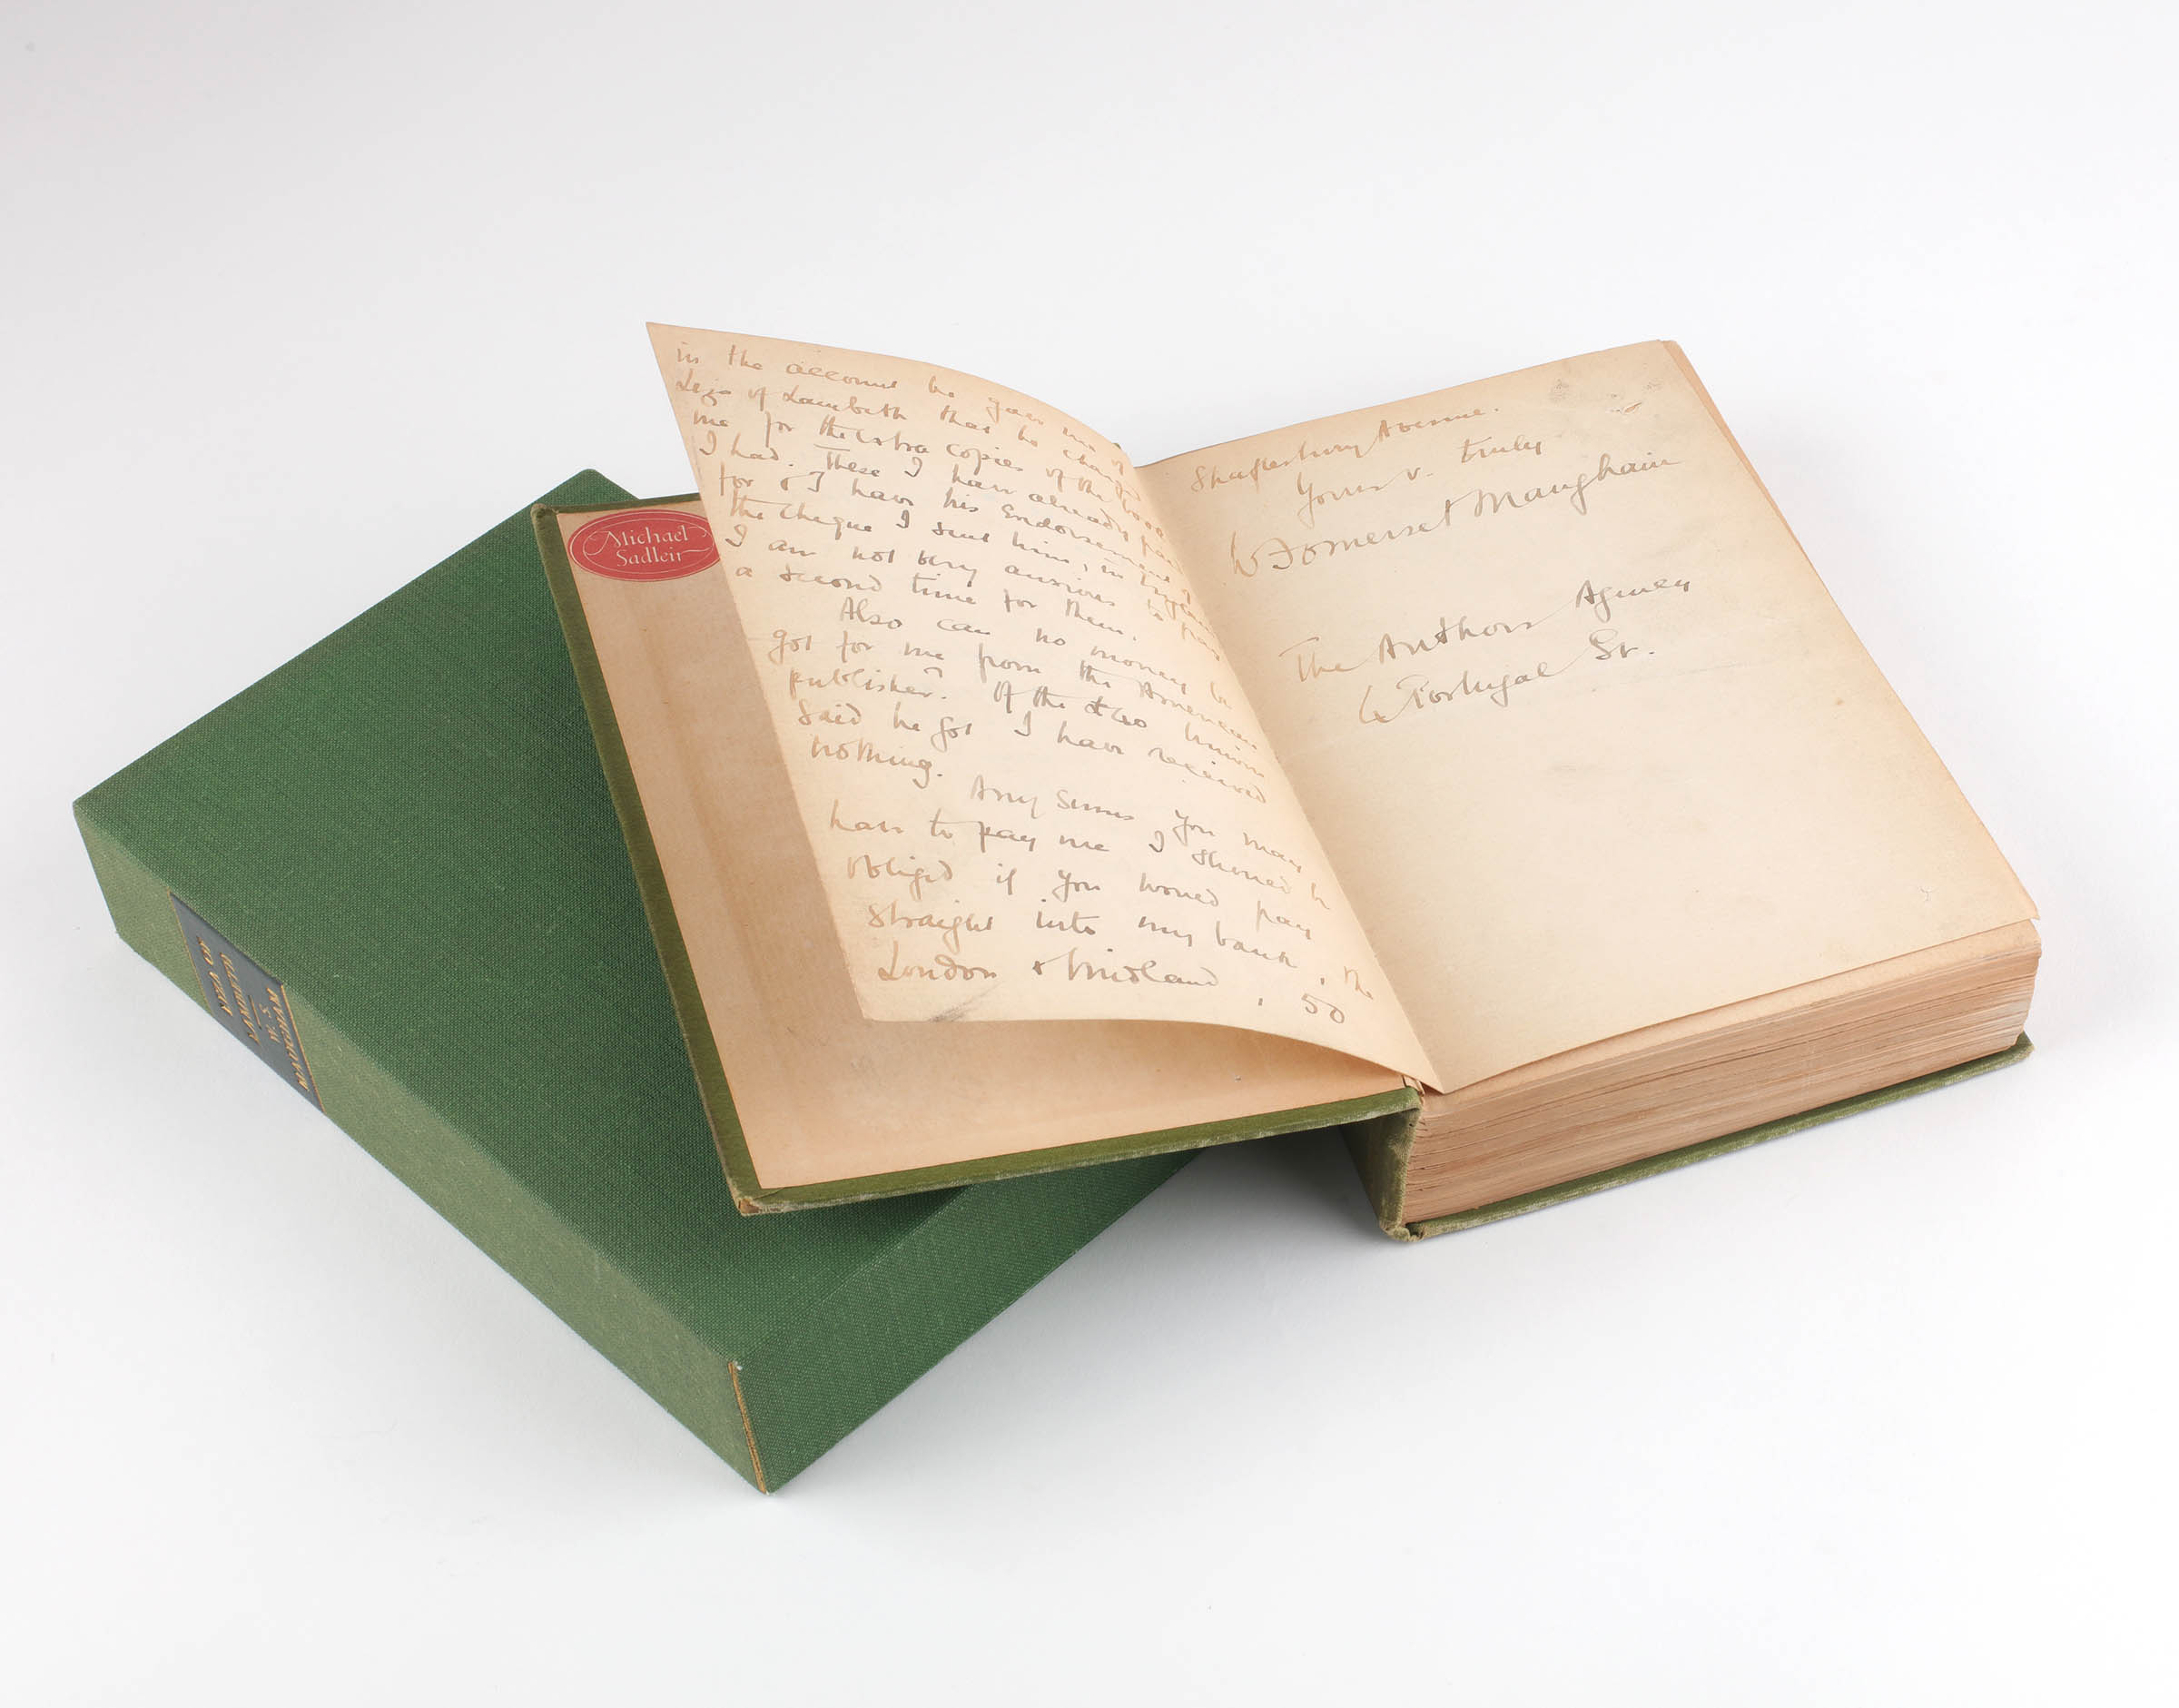 Michael
Sadleir
in the account he gave me of
Liza of Lambeth that he charged
me for the extra copies of the book
I had. These I have already paid
for & I have his endorsement
the cheque I sent him, in
I am not very anxious to pay
a second time for them.
Also can no money be
got for me from the American
publisher. Of the two
said he got I have received
nothing.
Any sums you may
have to pay me I should be
obliged if you would pay
straight into my bank, the
London & Midland, 50
Shaftesbury Avenue.
Yours v. truly
W Somerset Maugham
The Authors Agency
Portugal St.
LIZA OF
LAMBETH
W. S.
MAUGHAM